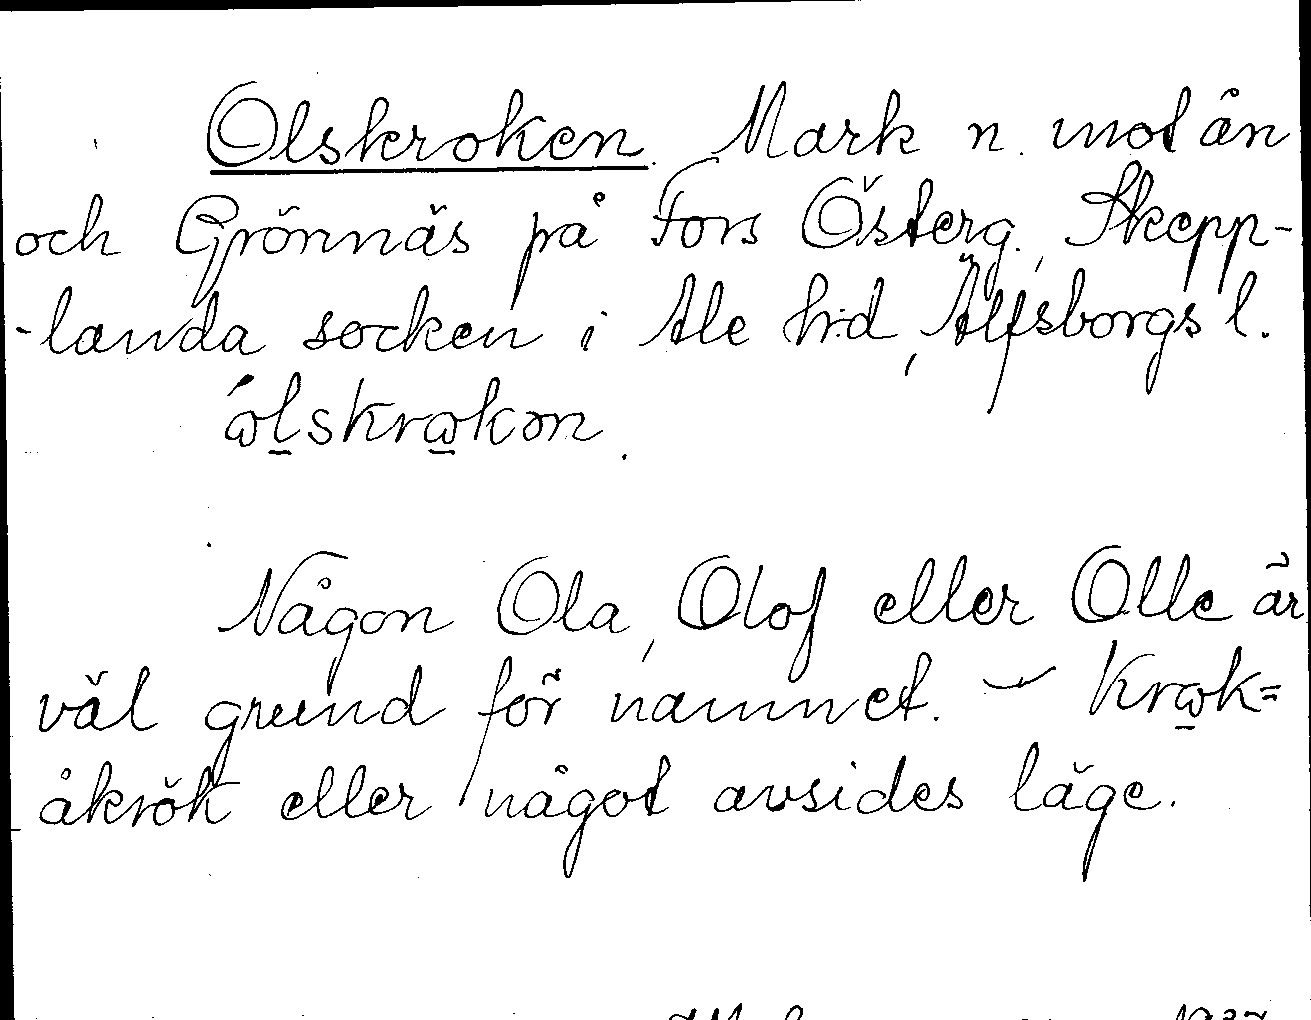 Olskroken. Mark n. mot ån
och Grönnäs på Fors Österg., Skepp-
-landa socken i Ale hd, Älfsborgs l.
Någon Ola, Olof eller Olle är
väl grund för namnet. –
åkrök eller något avsides läge.